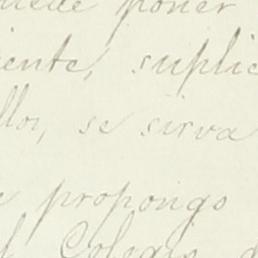 puede poner
iente, suplic
llo, se sirva
propongo
Colegio d